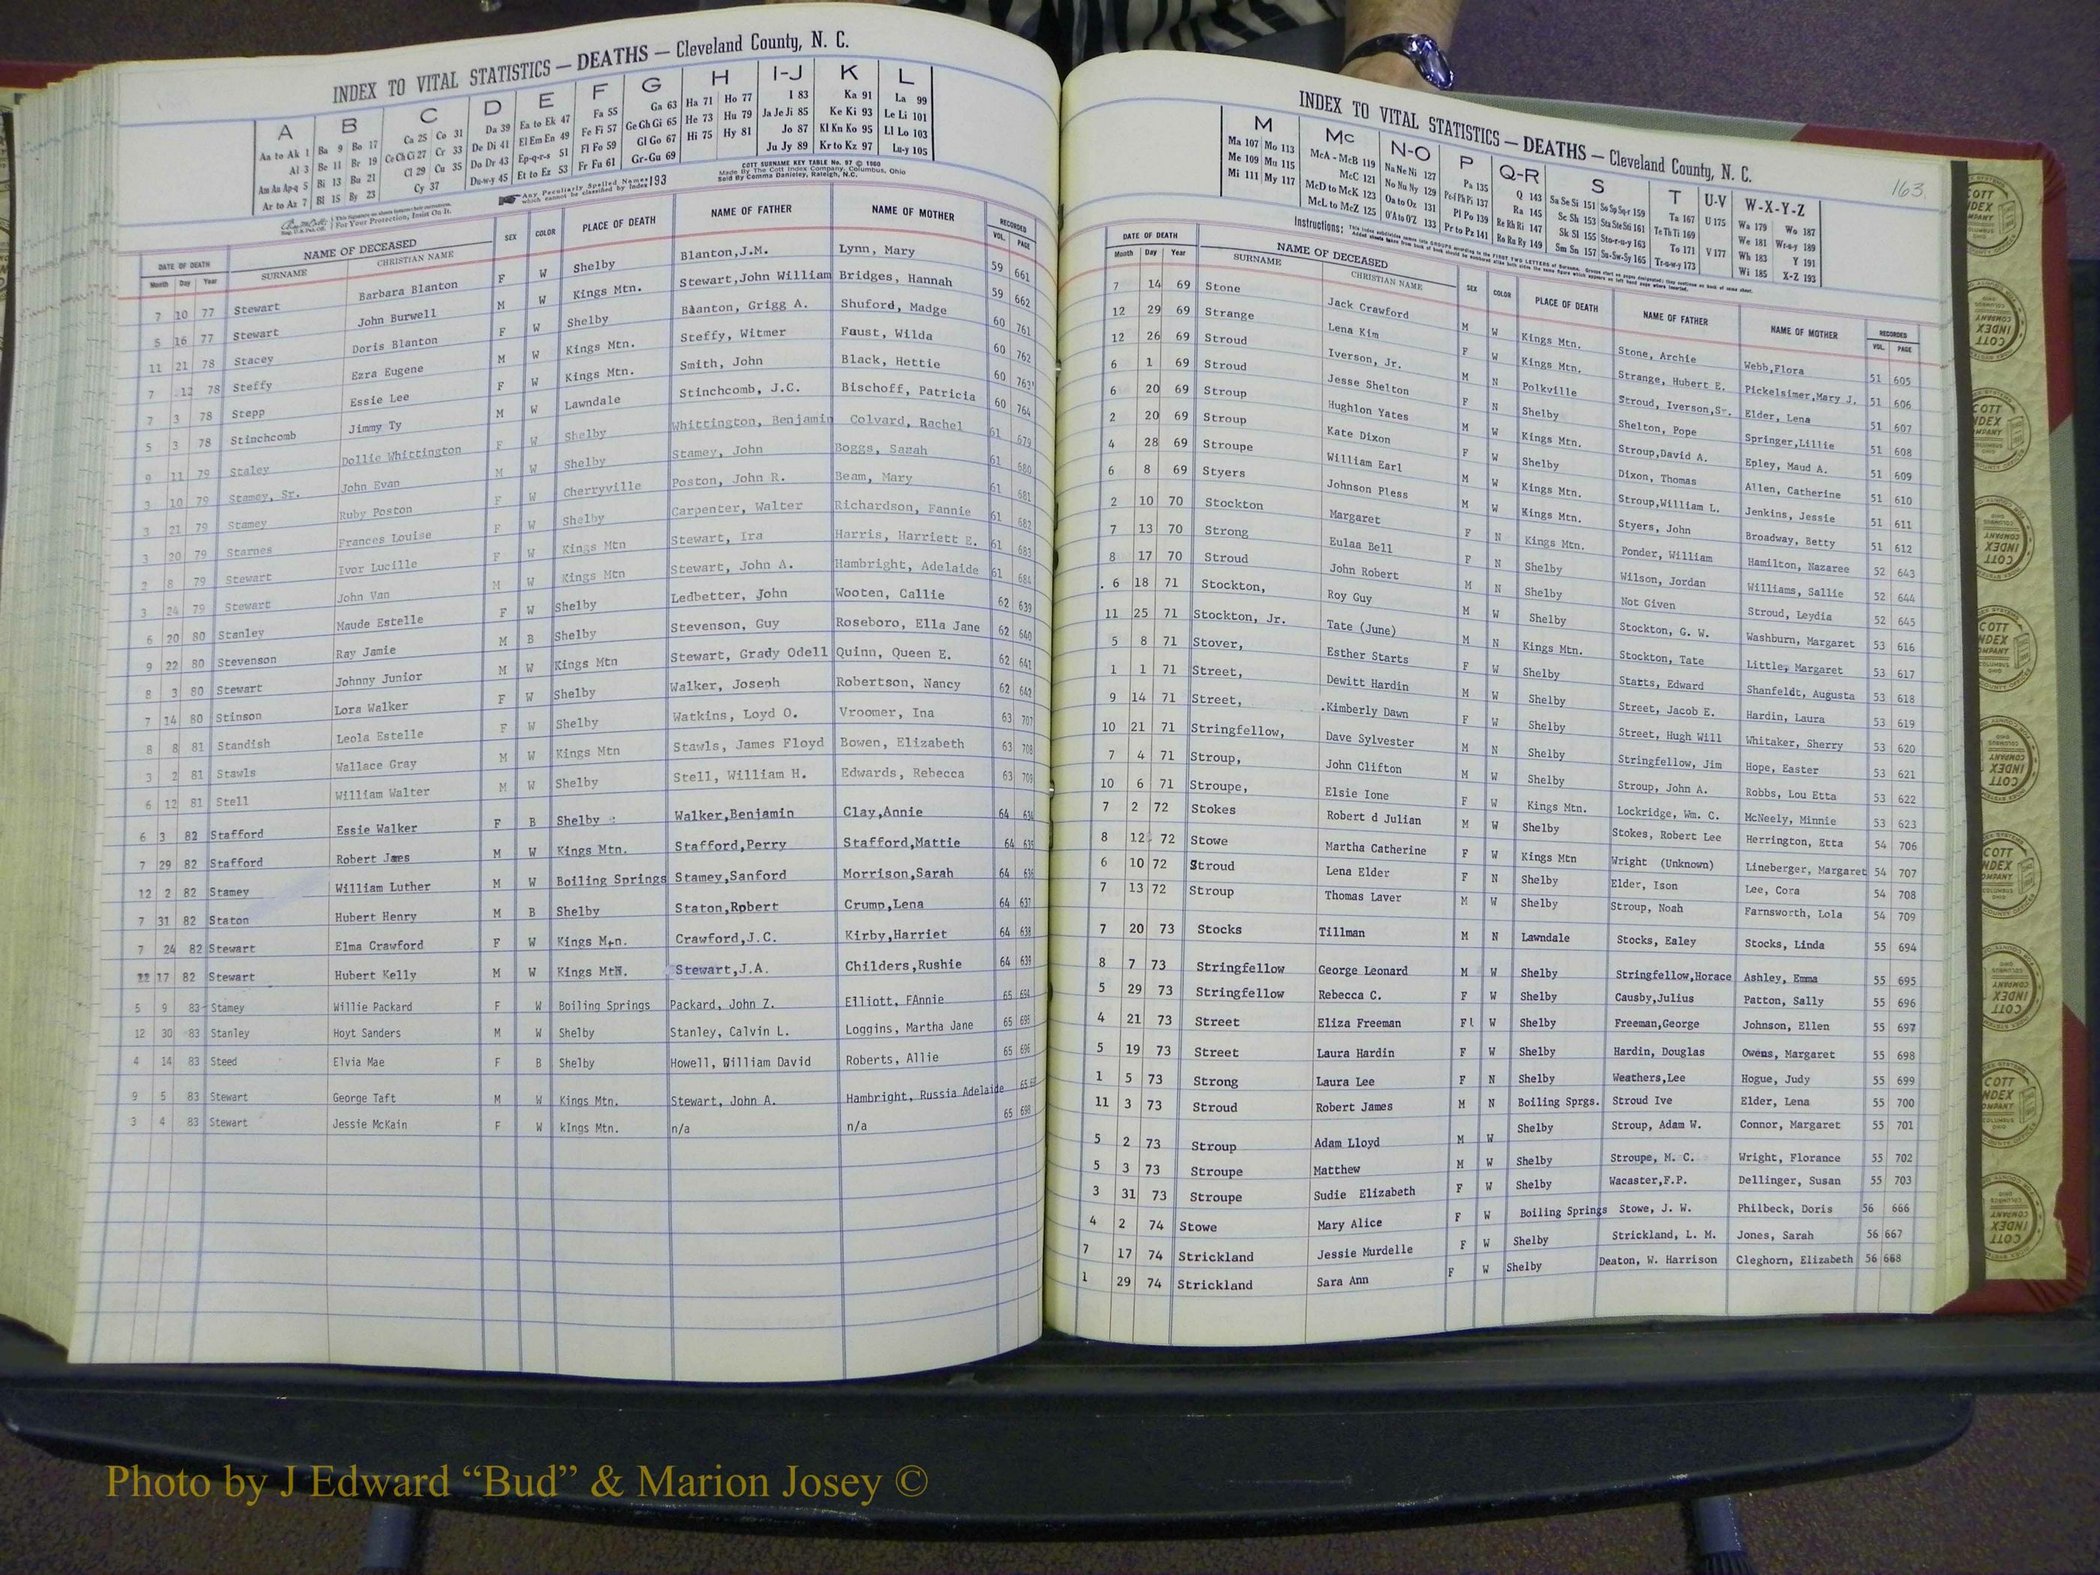 INDEX TO VITAL STATISTICS — DEATHS — Cleveland County, N. C.
A B C D E F G H I-J K L
Aa to Ak 1 Ba 9 Bo 17 Ca 25 Co 31 Da 39 Ea to Ek 47 Fa 55 Ga 63 Ha 71 Ho 77 I 83 Ka 91 La 99
Al 3 Be 11 Br 19 Ce Ch Ci 27 Cr 33 De Di 41 El Em En 49 Fe Fi 57 Ge Gh Gi 65 He 73 Hu 79 Ja Je Ji 85 Ke Ki 93 Le Li 101
Am An Ap-q 5 Bi 13 Bu 21 Cl 29 Cu 35 Do Dr 43 Ep-q-r-s 51 Fl Fo 59 Gl Go 67 Hi 75 Hy 81 Jo 87 Kl Kn Ko 95 Ll Lo 103
Ar to Az 7 Bl 15 By 23 Cy 37 Du-w-y 45 Et to Ez 53 Fr Fu 61 Gr-Gu 69 Ju Jy 89 Kr to Kz 97 Lu-y 105
Any Peculiarly Spelled Names which cannot be classified by Index 193
COTT SURNAME KEY TABLE No. 97 © 1960
Made By The Cott Index Company, Columbus, Ohio
Sold By Comma Danieley, Raleigh, N.C.
For Your Protection, Insist On It.
DATE OF DEATH NAME OF DECEASED SEX COLOR PLACE OF DEATH NAME OF FATHER NAME OF MOTHER RECORDED
Month Day Year SURNAME CHRISTIAN NAME VOL. PAGE
7 10 77 Stewart Barbara Blanton F W Shelby Blanton,J.M. Lynn, Mary 59 661
5 16 77 Stewart John Burwell M W Kings Mtn. Stewart,John William Bridges, Hannah 59 662
11 21 78 Stacey Doris Blanton F W Shelby Blanton, Grigg A. Shuford, Madge 60 761
7 12 78 Steffy Ezra Eugene M W Kings Mtn. Steffy, Witmer Faust, Wilda 60 762
7 3 78 Stepp Essie Lee F W Kings Mtn. Smith, John Black, Hettie 60 763
5 3 78 Stinchcomb Jimmy Ty M W Lawndale Stinchcomb, J.C. Bischoff, Patricia 60 764
9 11 79 Staley Dollie Whittington F W Shelby Whittington, Benjamin Colvard, Rachel 61 679
3 10 79 Stamey, Sr. John Evan M W Shelby Stamey, John Boggs, Sarah 61 680
3 21 79 Stamey Ruby Poston F W Cherryville Poston, John R. Beam, Mary 61 681
3 20 79 Starnes Frances Louise F W Shelby Carpenter, Walter Richardson, Fannie 61 682
2 8 79 Stewart Ivor Lucille F W Kings Mtn Stewart, Ira Harris, Harriett E. 61 683
3 24 79 Stewart John Van M W Kings Mtn Stewart, John A. Hambright, Adelaide 61 684
6 20 80 Stanley Maude Estelle F W Shelby Ledbetter, John Wooten, Callie 62 639
9 22 80 Stevenson Ray Jamie M B Shelby Stevenson, Guy Roseboro, Ella Jane 62 640
8 3 80 Stewart Johnny Junior M W Kings Mtn Stewart, Grady Odell Quinn, Queen E. 62 641
7 14 80 Stinson Lora Walker F W Shelby Walker, Joseph Robertson, Nancy 62 642
8 8 81 Standish Leola Estelle F W Shelby Watkins, Loyd O. Vroomer, Ina 63 707
3 2 81 Stawls Wallace Gray M W Kings Mtn Stawls, James Floyd Bowen, Elizabeth 63 708
6 12 81 Stell William Walter M W Shelby Stell, William H. Edwards, Rebecca 63 709
6 3 82 Stafford Essie Walker F B Shelby Walker,Benjamin Clay,Annie 64 634
7 29 82 Stafford Robert James M W Kings Mtn. Stafford,Perry Stafford,Mattie 64 635
12 2 82 Stamey William Luther M W Boiling Springs Stamey,Sanford Morrison,Sarah 64 636
7 31 82 Staton Hubert Henry M B Shelby Staton,Robert Crump,Lena 64 637
7 24 82 Stewart Elma Crawford F W Kings Mtn. Crawford,J.C. Kirby,Harriet 64 638
12 17 82 Stewart Hubert Kelly M W Kings MtN. Stewart,J.A. Childers,Rushie 64 639
5 9 83 Stamey Willie Packard F W Boiling Springs Packard, John Z. Elliott, FAnnie 65 694
12 30 83 Stanley Hoyt Sanders M W Shelby Stanley, Calvin L. Loggins, Martha Jane 65 695
4 14 83 Steed Elvia Mae F B Shelby Howell, William David Roberts, Allie 65 696
9 5 83 Stewart George Taft M W Kings Mtn. Stewart, John A. Hambright, Russia Adelaide 65
3 4 83 Stewart Jessie McKain F W kIngs Mtn. n/a n/a 65 698
INDEX TO VITAL STATISTICS — DEATHS — Cleveland County, N. C.
163
M Mc N-O P Q-R S T U-V W-X-Y-Z
Ma 107 Mo 113 McA - McB 119 Na Ne Ni 127 Pa 135 Q 143 Sa Se Si 151 So Sp Sq-r 159 Ta 167 U 175 Wa 179 Wo 187
Me 109 Mu 115 McC 121 No Nu Ny 129 Pe-f Ph Pi 137 Ra 145 Sc Sh 153 Sta Ste Sti 161 Te Th Ti 169 We 181 Wr-u-y 189
Mi 111 My 117 McD to McK 123 Oa to Oz 131 Pl Po 139 Re Rh Ri 147 Sk Sl 155 Sto-r-u-y 163 To 171 V 177 Wh 183 Y 191
McL to McZ 125 O'A to O'Z 133 Pr to Pz 141 Ro Ru Ry 149 Sm Sn 157 Su-Sw-Sy 165 Tr-u-w-y 173 Wi 185 X-Z 193
Instructions:
DATE OF DEATH NAME OF DECEASED SEX COLOR PLACE OF DEATH NAME OF FATHER NAME OF MOTHER RECORDED
Month Day Year SURNAME CHRISTIAN NAME VOL. PAGE
7 14 69 Stone Jack Crawford M W Kings Mtn. Stone, Archie Webb,Flora 51 605
12 29 69 Strange Lena Kim F W Kings Mtn. Strange, Hubert E. Pickelsimer,Mary J. 51 606
12 26 69 Stroud Iverson, Jr. M N Polkville Stroud, Iverson,Sr. Elder, Lena 51 607
6 1 69 Stroud Jesse Shelton F N Shelby Shelton, Pope Springer,Lillie 51 608
6 20 69 Stroup Hughlon Yates M W Kings Mtn. Stroup,David A. Epley, Maud A. 51 609
2 20 69 Stroup Kate Dixon F W Shelby Dixon, Thomas Allen, Catherine 51 610
4 28 69 Stroupe William Earl M W Kings Mtn. Stroup,William L. Jenkins, Jessie 51 611
6 8 69 Styers Johnson Pless M W Kings Mtn. Styers, John Broadway, Betty 51 612
2 10 70 Stockton Margaret F N Kings Mtn. Ponder, William Hamilton, Nazaree 52 643
7 13 70 Strong Eulaa Bell F N Shelby Wilson, Jordan Williams, Sallie 52 644
8 17 70 Stroud John Robert M N Shelby Not Given Stroud, Leydia 52 645
6 18 71 Stockton, Roy Guy M W Shelby Stockton, G. W. Washburn, Margaret 53 616
11 25 71 Stockton, Jr. Tate (June) M N Kings Mtn. Stockton, Tate Little, Margaret 53 617
5 8 71 Stover, Esther Starts F W Shelby Starts, Edward Shanfeldt, Augusta 53 618
1 1 71 Street, Dewitt Hardin M W Shelby Street, Jacob E. Hardin, Laura 53 619
9 14 71 Street, Kimberly Dawn F W Shelby Street, Hugh Will Whitaker, Sherry 53 620
10 21 71 Stringfellow, Dave Sylvester M N Shelby Stringfellow, Jim Hope, Easter 53 621
7 4 71 Stroup, John Clifton M W Shelby Stroup, John A. Robbs, Lou Etta 53 622
10 6 71 Stroupe, Elsie Ione F W Kings Mtn. Lockridge, Wm. C. McNeely, Minnie 53 623
7 2 72 Stokes Robert d Julian M W Shelby Stokes, Robert Lee Herrington, Etta 54 706
8 12 72 Stowe Martha Catherine F W Kings Mtn Wright (Unknown) Lineberger, Margaret 54 707
6 10 72 Stroud Lena Elder F N Shelby Elder, Ison Lee, Cora 54 708
7 13 72 Stroup Thomas Laver M W Shelby Stroup, Noah Farnsworth, Lola 54 709
7 20 73 Stocks Tillman M N Lawndale Stocks, Ealey Stocks, Linda 55 694
8 7 73 Stringfellow George Leonard M W Shelby Stringfellow,Horace Ashley, Emma 55 695
5 29 73 Stringfellow Rebecca C. F W Shelby Causby,Julius Patton, Sally 55 696
4 21 73 Street Eliza Freeman F W Shelby Freeman,George Johnson, Ellen 55 697
5 19 73 Street Laura Hardin F W Shelby Hardin, Douglas Owens, Margaret 55 698
1 5 73 Strong Laura Lee F N Shelby Weathers,Lee Hogue, Judy 55 699
11 3 73 Stroud Robert James M N Boiling Sprgs. Stroud Ive Elder, Lena 55 700
5 2 73 Stroup Adam Lloyd M W Shelby Stroup, Adam W. Connor, Margaret 55 701
5 3 73 Stroupe Matthew M W Shelby Stroupe, M. C. Wright, Florance 55 702
3 31 73 Stroupe Sudie Elizabeth F W Shelby Wacaster,F.P. Dellinger, Susan 55 703
4 2 74 Stowe Mary Alice F W Boiling Springs Stowe, J. W. Philbeck, Doris 56 666
7 17 74 Strickland Jessie Murdelle F W Shelby Strickland, L. M. Jones, Sarah 56 667
1 29 74 Strickland Sara Ann F W Shelby Deaton, W. Harrison Cleghorn, Elizabeth 56 668
COTT INDEX COMPANY
Photo by J Edward “Bud” & Marion Josey ©